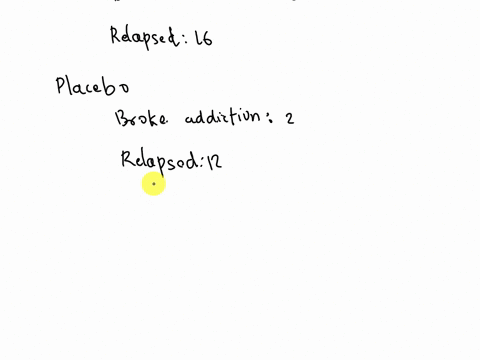 Relapsed: 16
Placebo
Broke addiction: 2
Relapsod: 12